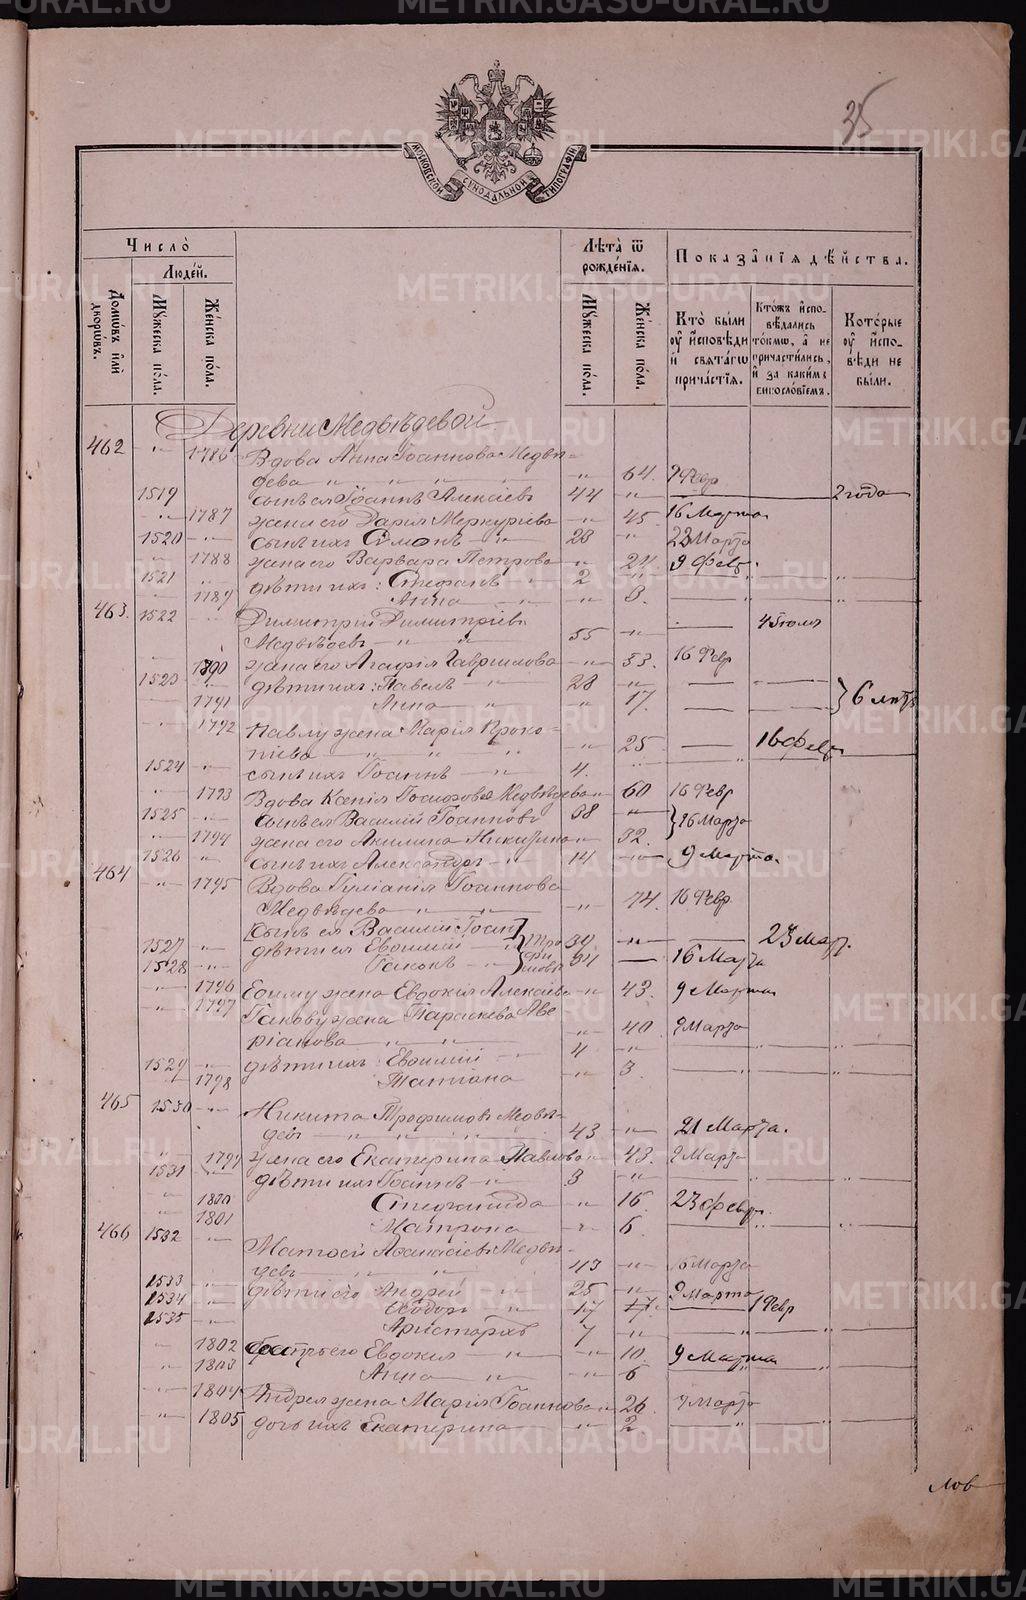 35
МОСКОВСКОЙ СѴНОДАЛЬНОЙ ТИПОГРАФІИ
Число̀ Людей. Лѣта̀ ѿ рожденїя. Показанїя дѣйства.
Домѡвъ или дворѡвъ. Мꙋжеска пола. Женска пола. Мꙋжеска пола. Женска пола. Кто̀ были ѹ исповѣди и свѧтагѡ причастїя. Ктожъ исповѣдались токмѡ, а не причастились, и за какимъ винословїемъ. Которые ѹ исповѣди не были.
Деревни Медвѣдевой.
462 -"- 1786 Вдова Анна Іоаннова Медвѣ-
дева " " " " -"- 64. 9 Февр
1519 сынъ ея Іоаннъ Алексіевъ 44 -"- 2 года
-"- 1787 жена его Дарія Меркуріева -"- 45. 16 Марта
1520 -"- сынъ ихъ Симонъ -"- 23 -"- 23 Марта
-"- 1788 жена его Варвара Петрова " 24. 9 Февр.
1521 " дѣти ихъ: Стефанъ " 2 " — " "
" 1789 Анна — " -"- 3. — " "
463. 1522 -"- Димитрій Димитріевъ
Медвѣдевъ -"- " 55 -"- —
1790 жена его Агафія Гавриилова -"- 53. 16 Февр
1523 -"- дѣти ихъ: Павелъ -"- 28 -"- — —
1791 Анна " " 17. — — } 6 лѣтъ
-"- 1792 Павлу жена Марія Проко-
піева " " " -"- 25 — 16 Февр
1524 -"- сынъ ихъ Іоаннъ -"- 4. " "
" 1793 Вдова Ксенія Іосифова Медвѣдева " 60 16 Февр
1525 -"- сынъ ея Василій Іоанновъ 38 -"-
" 1794 жена его Акилина Никитина " 32. } 16 Марта
1526 " сынъ ихъ Александръ -"- 14 -"- 9 Марта
464 -"- 1795 Вдова Іуліанія Іоаннова
Медвѣдева " " -"- 74. 16 Февр
[сынъ ея Василій Іоан]
1527 -"- дѣти ея Евѳимій — " } Тро 39 -"- — 23 Март.
1528 -"- Іаковъ -"- } фи мовы — 16 Марта
-"- 1796 Еѳиму жена Евдокія Алексіева -"- 43. 9 Марта
" 1797 Іакову жена Параскева Аве
ріанова " " " 40. 9 Марта
1529 -"- дѣти ихъ: Евѳимій -"- 4 -"- — " "
" 1798 Татіана " 3. — " "
465 1530 -"- Никита Трофимовъ Медвѣ-
девъ — " " " " 43 -"- 21 Марта.
" 1799 жена его Екатерина Павлова " 43. 9 Марта
1531 -"- дѣти ихъ Іоаннъ — " 3 -"- — " "
" 1800 Стефанида " 16. 23 Февр.
" 1801 Матрона " 6. " "
466 1532 -"- Матѳей Аѳанасіевъ Медвѣ-
девъ " " 43 -"- 16 Марта
1533 -"- дѣти его Андрей " 25 -"- 9 Марта
1534 -"- Ѳеодоръ " 17 17. — 9 Февр
1535 -"- Аристархъ 7 -"- — " "
1802 сестры его Евдокія — " -"- 10. 9 Марта
" 1803 Анна " -"- 6 — " "
" 1804 Андрея жена Марія Іоаннова " 26. 9 Марта
-"- 1805 дочь ихъ Екатерина -"- " 2. — "
лов
METRIKI.GASO-URAL.RU